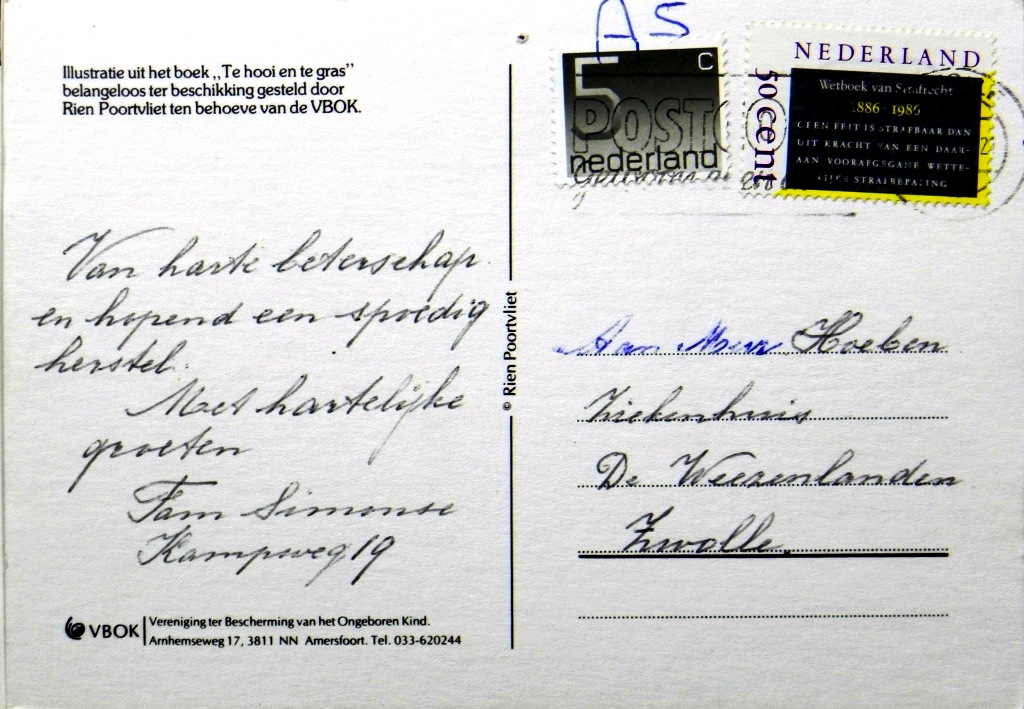 Illustratie uit het boek „Te hooi en te gras”
belangeloos ter beschikking gesteld door
Rien Poortvliet ten behoeve van de VBOK.
Van harte beterschap
en hopend een spoedig
herstel.
Met hartelijke
groeten
Fam Simonse
Kampweg 19
VBOK
Vereniging ter Bescherming van het Ongeboren Kind.
Arnhemseweg 17, 3811 NN Amersfoort. Tel. 033-620244
© Rien Poortvliet
A5
5 c
POST
nederland
NEDERLAND
50 cent
Wetboek van Strafrecht
1886 · 1986
GEEN FEIT IS STRAFBAAR DAN
UIT KRACHT VAN EEN DAAR-
AAN VOORAFGEGANE WETTE-
LIJKE STRAFBEPALING
Aan Mevr Hoeben
Ziekenhuis
De Weezenlanden
Zwolle.